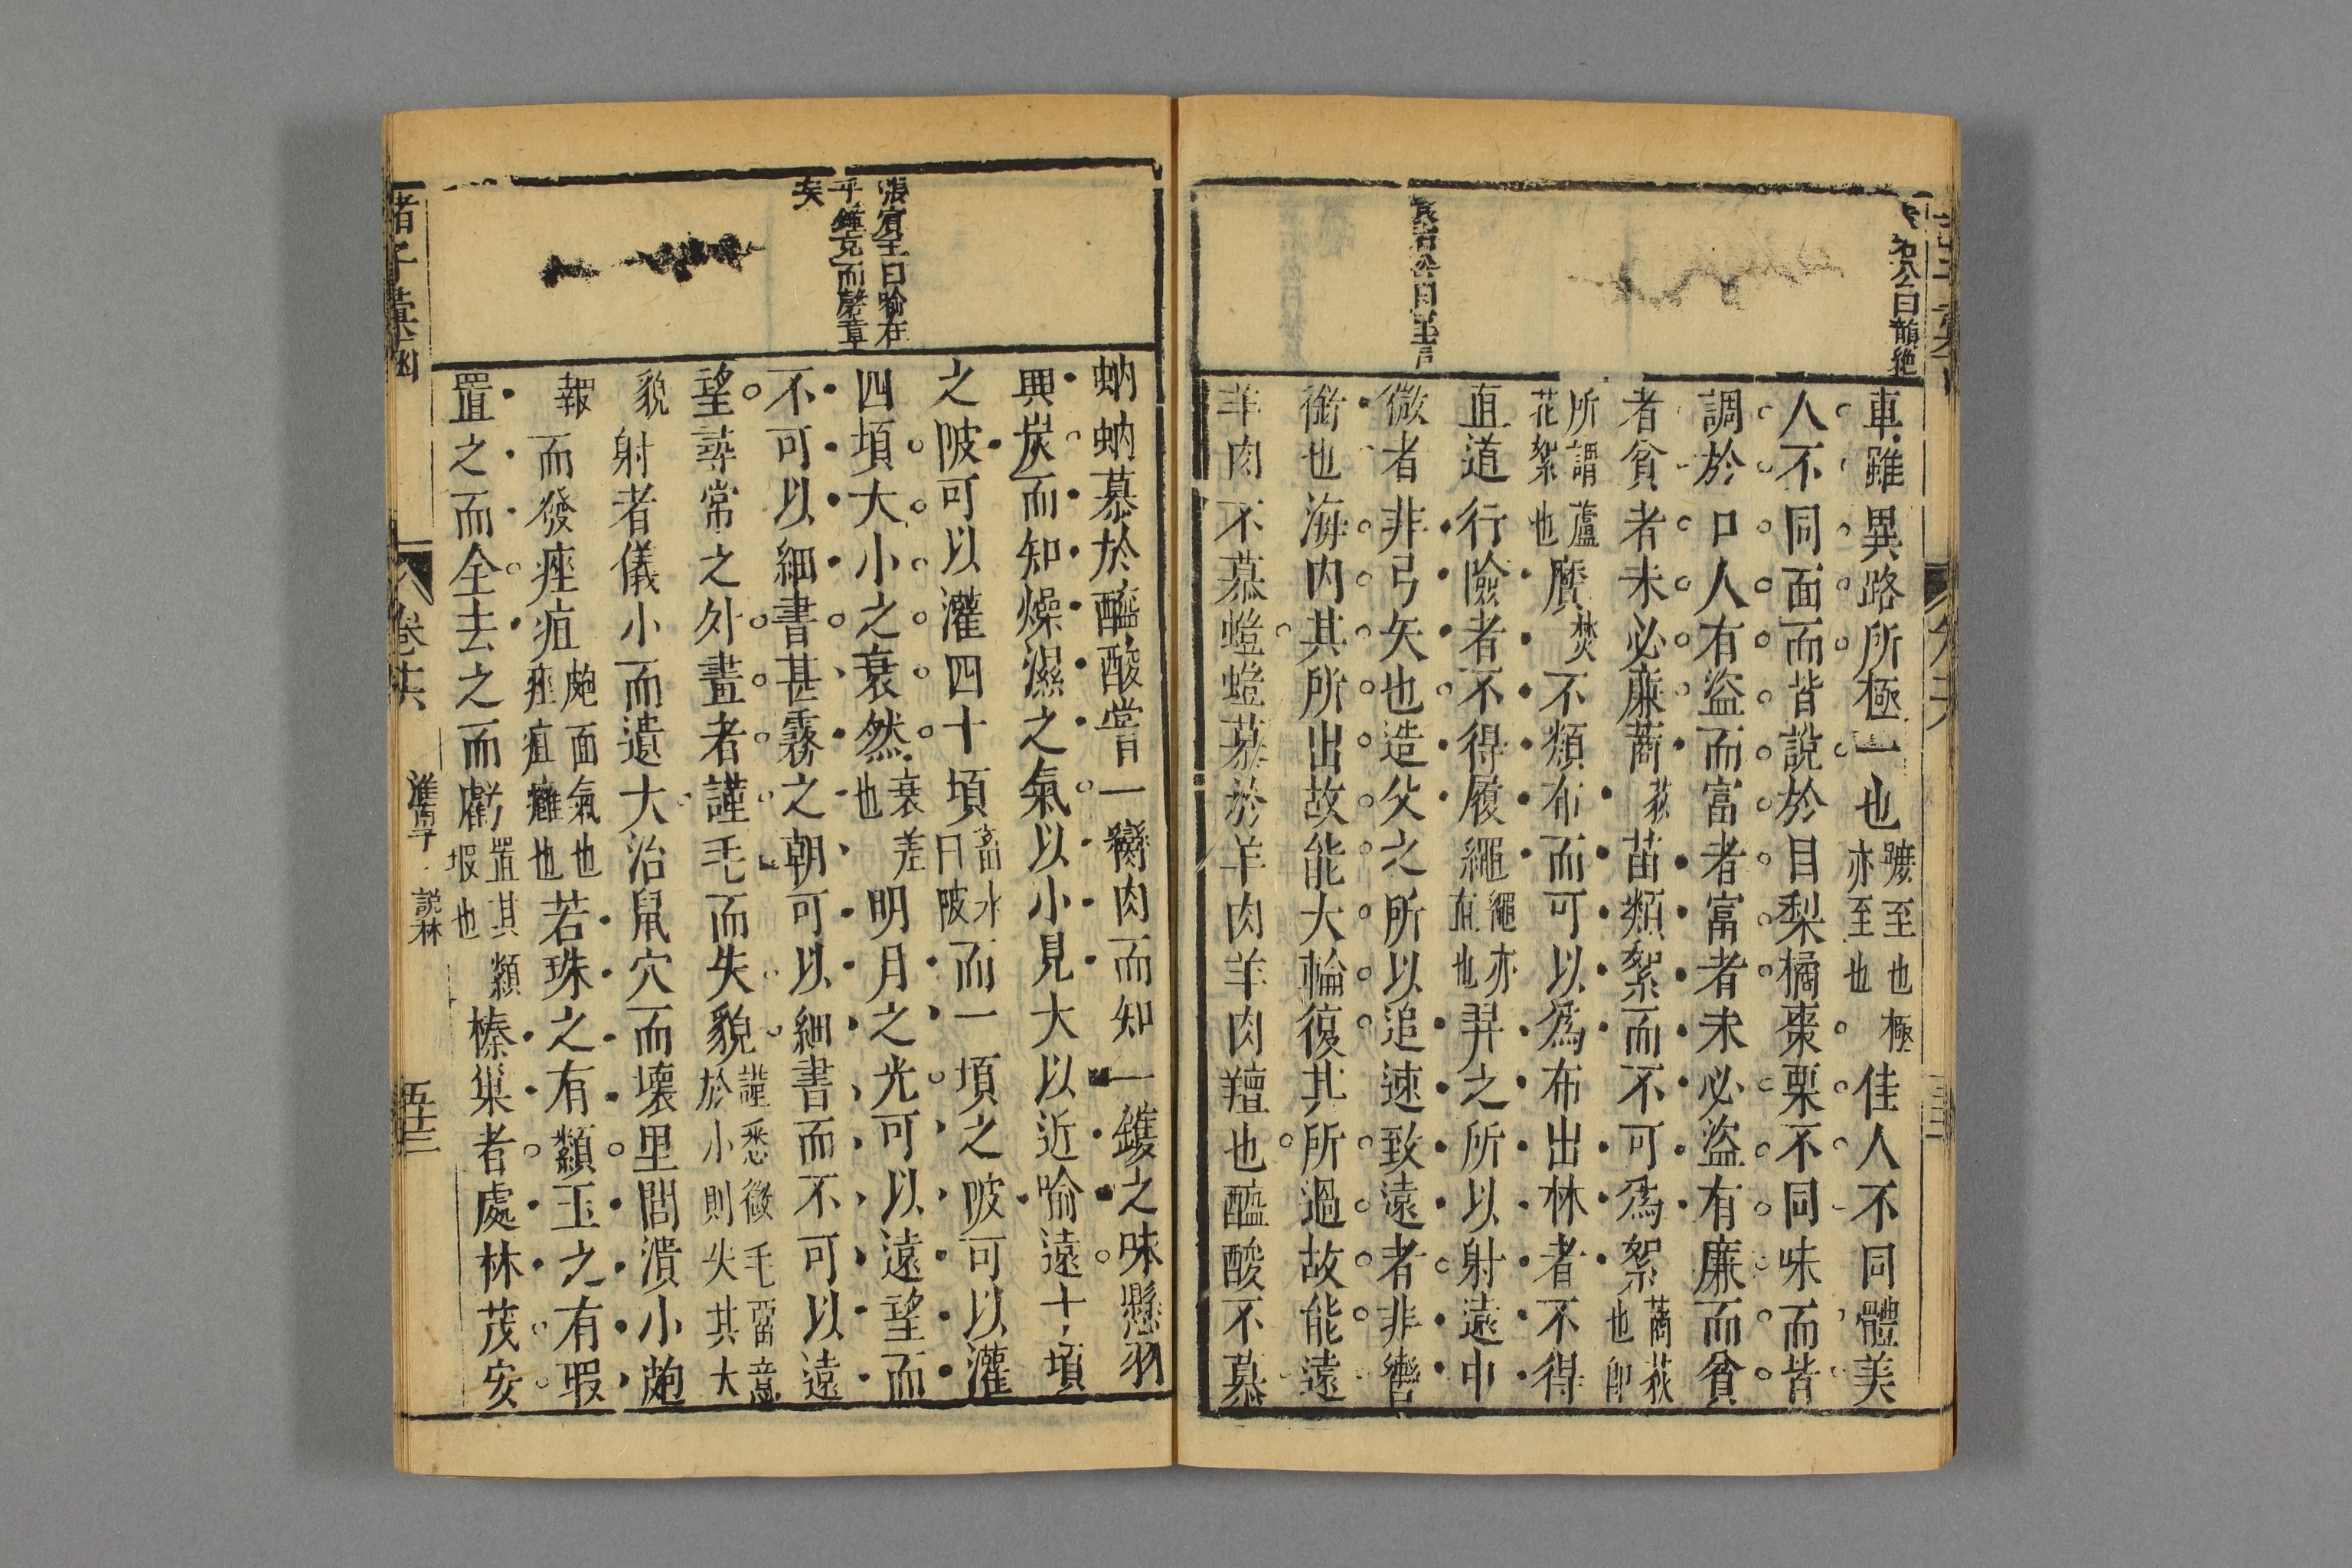 石公曰韻絶
車雖異路所極一也蹠至也極亦至也佳人不同體美
人不同面而皆說於目梨橘棗栗不同味而皆
調於口人有盜而富者富者未必盜有廉而貧
者貧者未必廉䔥荻苗類絮而不可爲絮䔥荻也卽
所謂蘆花絮也黂焚不類布而可以爲布出林者不得
直道行險者不得履繩繩亦直也羿之所以射遠中
袁石公曰至言
微者非弓矢也造父之所以追速致遠者非轡
銜也海內其所出故能大輪復其所過故能遠
羊肉不慕螘螘慕於羊肉羊肉羶也醯酸不慕
蚋蚋慕於醯酸嘗一臠肉而知一鑊之味懸羽
與炭而知燥濕之氣以小見大以近喻遠十頃
之陂可以灌四十頃畜水曰陂而一頃之陂可以灌
張賓王曰喻在
乎鍾克而磬章
矣
四頃大小之衰然衰差也明月之光可以遠望而
不可以細書甚霧之朝可以細書而不可以遠
望尋常之外畫者謹毛而失貌謹悉微毛留意於小則失其大
貌射者儀小而遺大治鼠穴而壞里閭潰小皰
報而發痤疽皰面氣也痤疽癰也若珠之有纇玉之有瑕
置之而全去之而虧置其纇瑕也榛巢者處林茂安
諸子彙函
卷十六
淮南子
說林
五十三